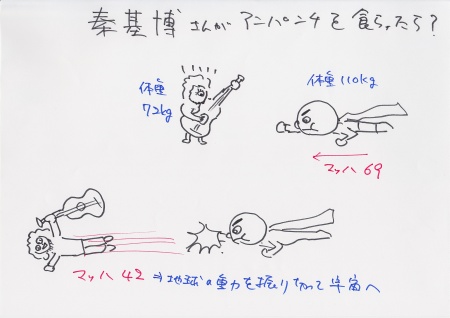 秦基博さんがアンパンチを食らったら?
体重
72kg
体重110kg
マッハ69
マッハ42⇒地球の重力を振り切って宇宙へ